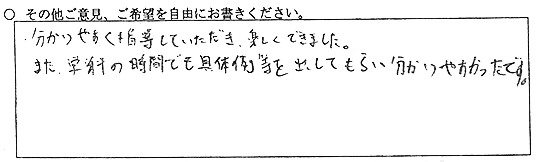 ○ その他ご意見、ご希望を自由にお書きください。
分かりやすく指導していただき、楽しくできました。
また、学科の時間でも具体例等を出してもらい分かりやすかったです。